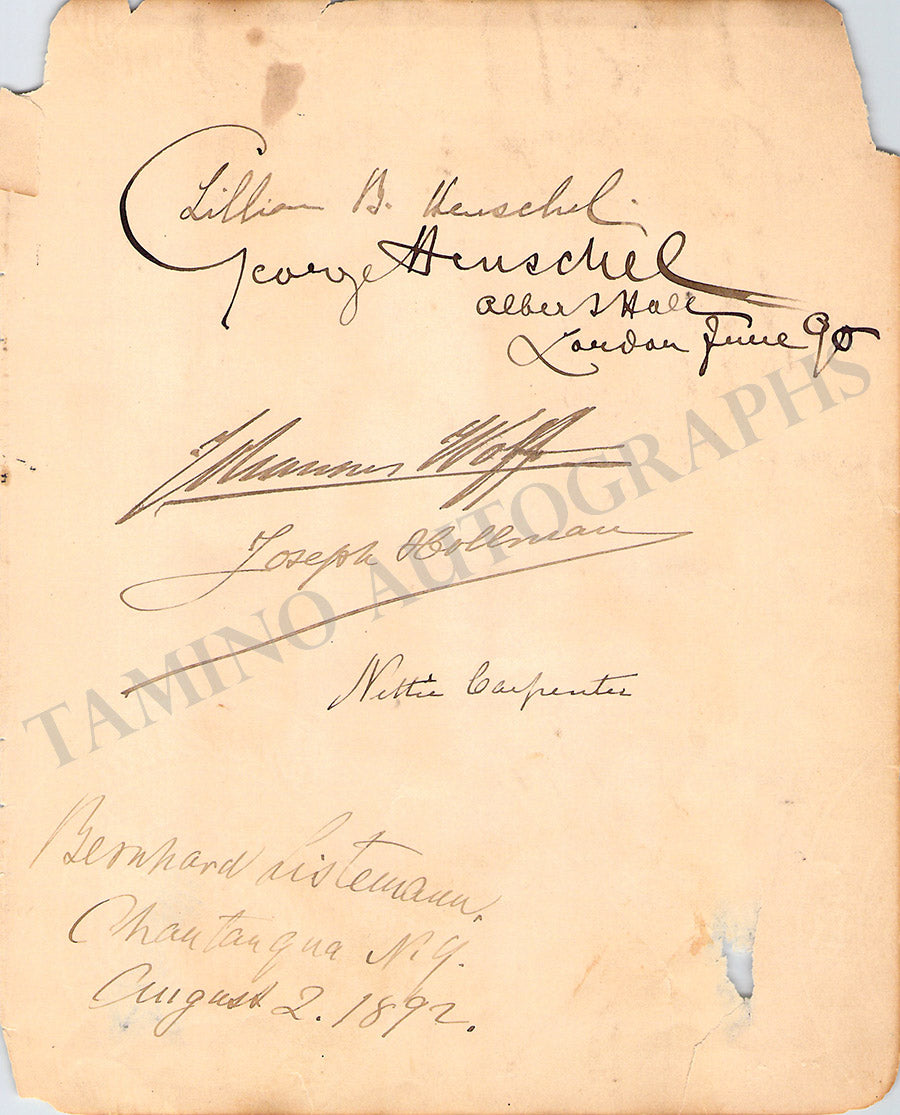 Lillian B. Henschel.
George Henschel
Albert Hall
London June 90
Johannes Wolff
Joseph Hollman
Nettie Carpenter
TAMINO AUTOGRAPHS
Bernhard Listemann.
Chautauqua N.Y.
August 2. 1892.